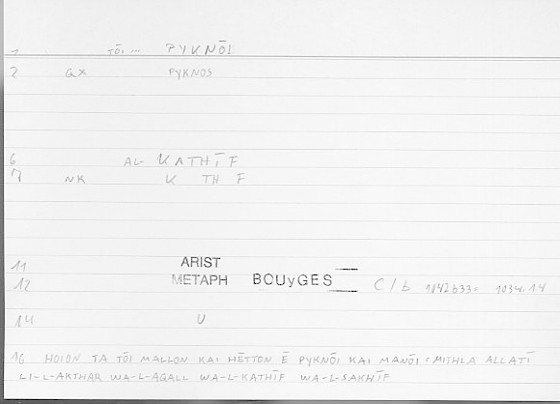 1 TŌI ... PYKNŌI
2 QX PYKNOS
6 AL- KATHĪF
7 NK K TH F
11 ARIST
12 METAPH BOUyGES C/b 1042b33 = 1034.14
14 U
16 HOION TA TŌI MALLON KAI HĒTTON Ē PYKNŌI KAI MANŌI = MITHLA ALLATĪ
LI-L-AKTHAR WA-L-AQALL WA-L-KATHĪF WA-L-SAKHĪF